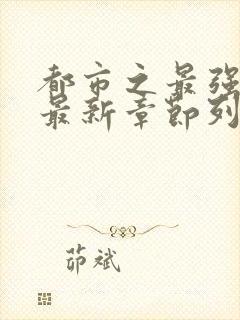 都市之最强
最新章節列
茆斌